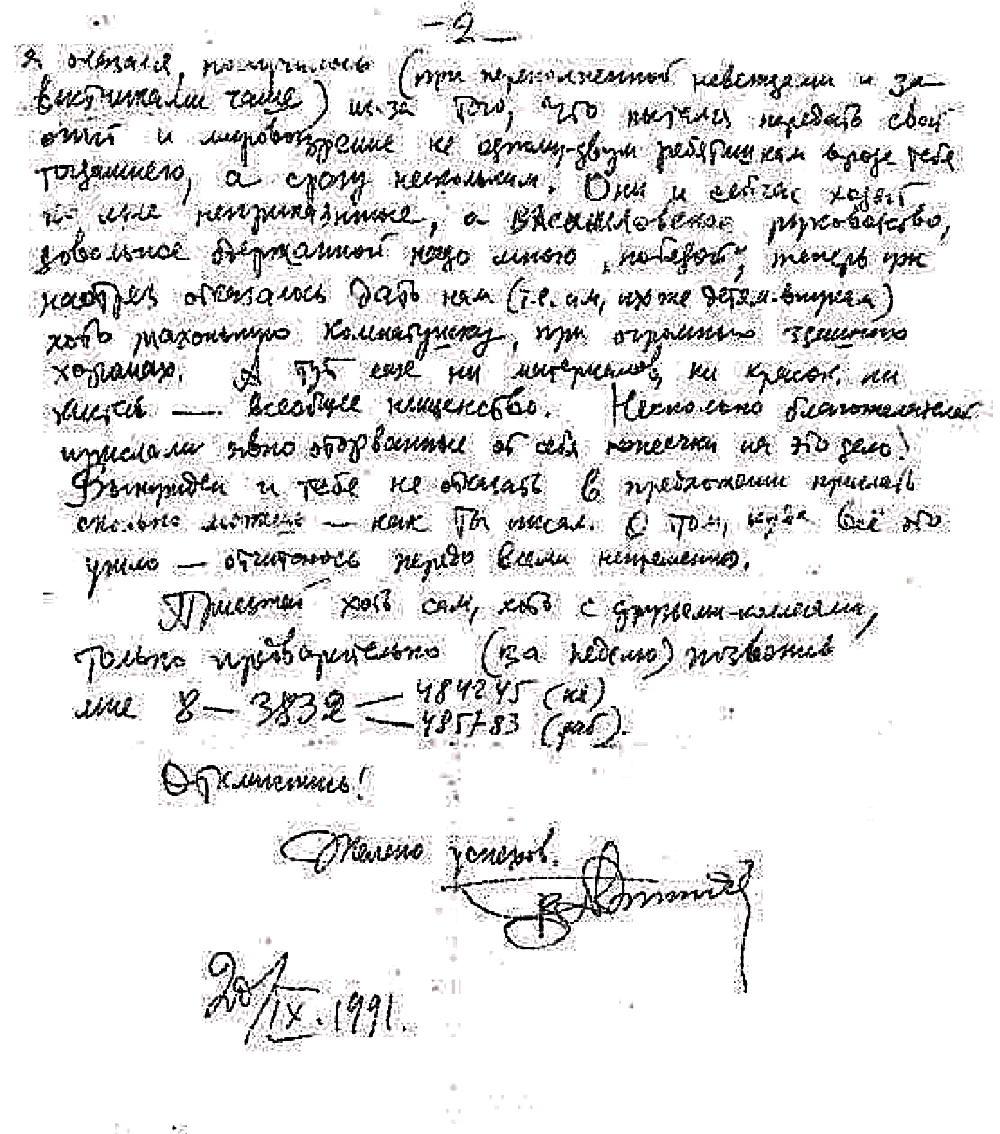 -2-
я оказался, получилось (при переполненной невеждами и за-
вистниками чаше) из-за того, что пытался передать свой
опыт и мировоззрение не одному-двум ребятишкам вроде тебя
тогдашнего, а сразу нескольким. Они и сейчас ходят
ко мне неприкаянные, а ВАСХНИЛовское руководство,
довольное одержанной надо мною "победой", теперь уж
наотрез отказалось дать нам (т.е. им, их же детям-внукам)
хоть махонькую комнатушку, при огромных здешних
хоромах. А тут еще ни материалов, ни красок, ни
кистей — всеобщее нищенство. Несколько благожелателей
прислали явно оторванные от себя копеечки на это дело!
Вынужден и тебе не отказать в предложении прислать
сколько можешь — как ты писал. О том, куда всё это
ушло — отчитаюсь передо всеми непременно.
Приезжай хоть сам, хоть с друзьями-коллегами,
только предварительно (за неделю) позвонив
мне 8-3832 — 484245 (кв)
— 485783 (раб).
Откликнись!
Желаю успехов.
20/IX.1991.